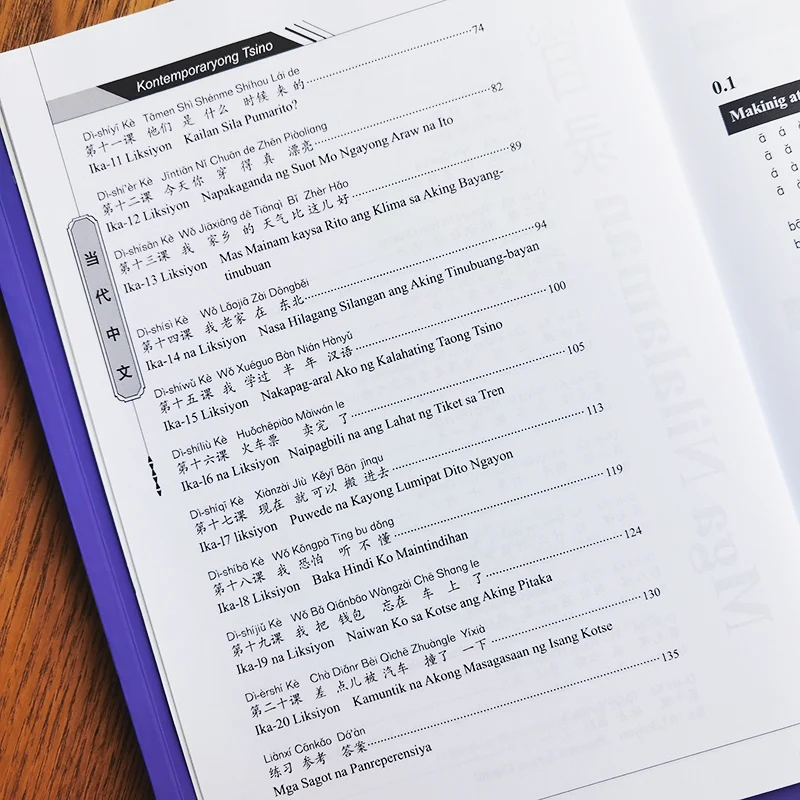 Kontemporaryong Tsino
Dì-shíyī Kè Tāmen Shì Shénme Shíhou Lái de
第十一课 他们 是 什么 时候 来 的 74
Ika-11 Liksiyon Kailan Sila Pumarito?
Dì-shí'èr Kè Jīntiān Nǐ Chuān de Zhēn Piàoliang
第十二课 今天 你 穿 得 真 漂亮 82
Ika-12 Liksiyon Napakaganda ng Suot Mo Ngayong Araw na Ito
Dì-shísān Kè Wǒ Jiāxiāng de Tiānqì Bǐ Zhèr Hǎo
第十三课 我 家乡 的 天气 比 这儿 好 89
Ika-13 Liksiyon Mas Mainam kaysa Rito ang Klima sa Aking Bayang-
tinubuan
Dì-shísì Kè Wǒ Lǎojiā Zài Dōngběi
第十四课 我 老家 在 东北 94
Ika-14 na Liksiyon Nasa Hilagang Silangan ang Aking Tinubuang-bayan
Dì-shíwǔ Kè Wǒ Xuéguo Bàn Nián Hànyǔ
第十五课 我 学过 半 年 汉语 100
Ika-15 Liksiyon Nakapag-aral Ako ng Kalahating Taong Tsino
Dì-shíliù Kè Huǒchēpiào Màiwán le
第十六课 火车票 卖完 了 105
Ika-l6 na Liksiyon Naipagbili na ang Lahat ng Tiket sa Tren
Dì-shíqī Kè Xiànzài Jiù Kěyǐ Bān jìnqu
第十七课 现在 就 可以 搬 进去 113
Ika-l7 liksiyon Puwede na Kayong Lumipat Dito Ngayon
Dì-shíbā Kè Wǒ Kǒngpà Tīng bu dǒng
第十八课 我 恐怕 听 不 懂 119
Ika-l8 Liksiyon Baka Hindi Ko Maintindihan
Dì-shíjiǔ Kè Wǒ Bǎ Qiánbāo Wàngzài Chē Shang le
第十九课 我 把 钱包 忘在 车 上 了 124
Ika-l9 na Liksiyon Naiwan Ko sa Kotse ang Aking Pitaka
Dì-èrshí Kè Chà Diǎnr Bèi Qìchē Zhuàngle Yíxià
第二十课 差 点儿 被 汽车 撞了 一下 130
Ika-20 Liksiyon Kamuntik na Akong Masagasaan ng Isang Kotse
Liànxí Cānkǎo Dá'àn
练习 参考 答案 135
Mga Sagot na Panreperensiya
当代中文
0.1
Makinig at